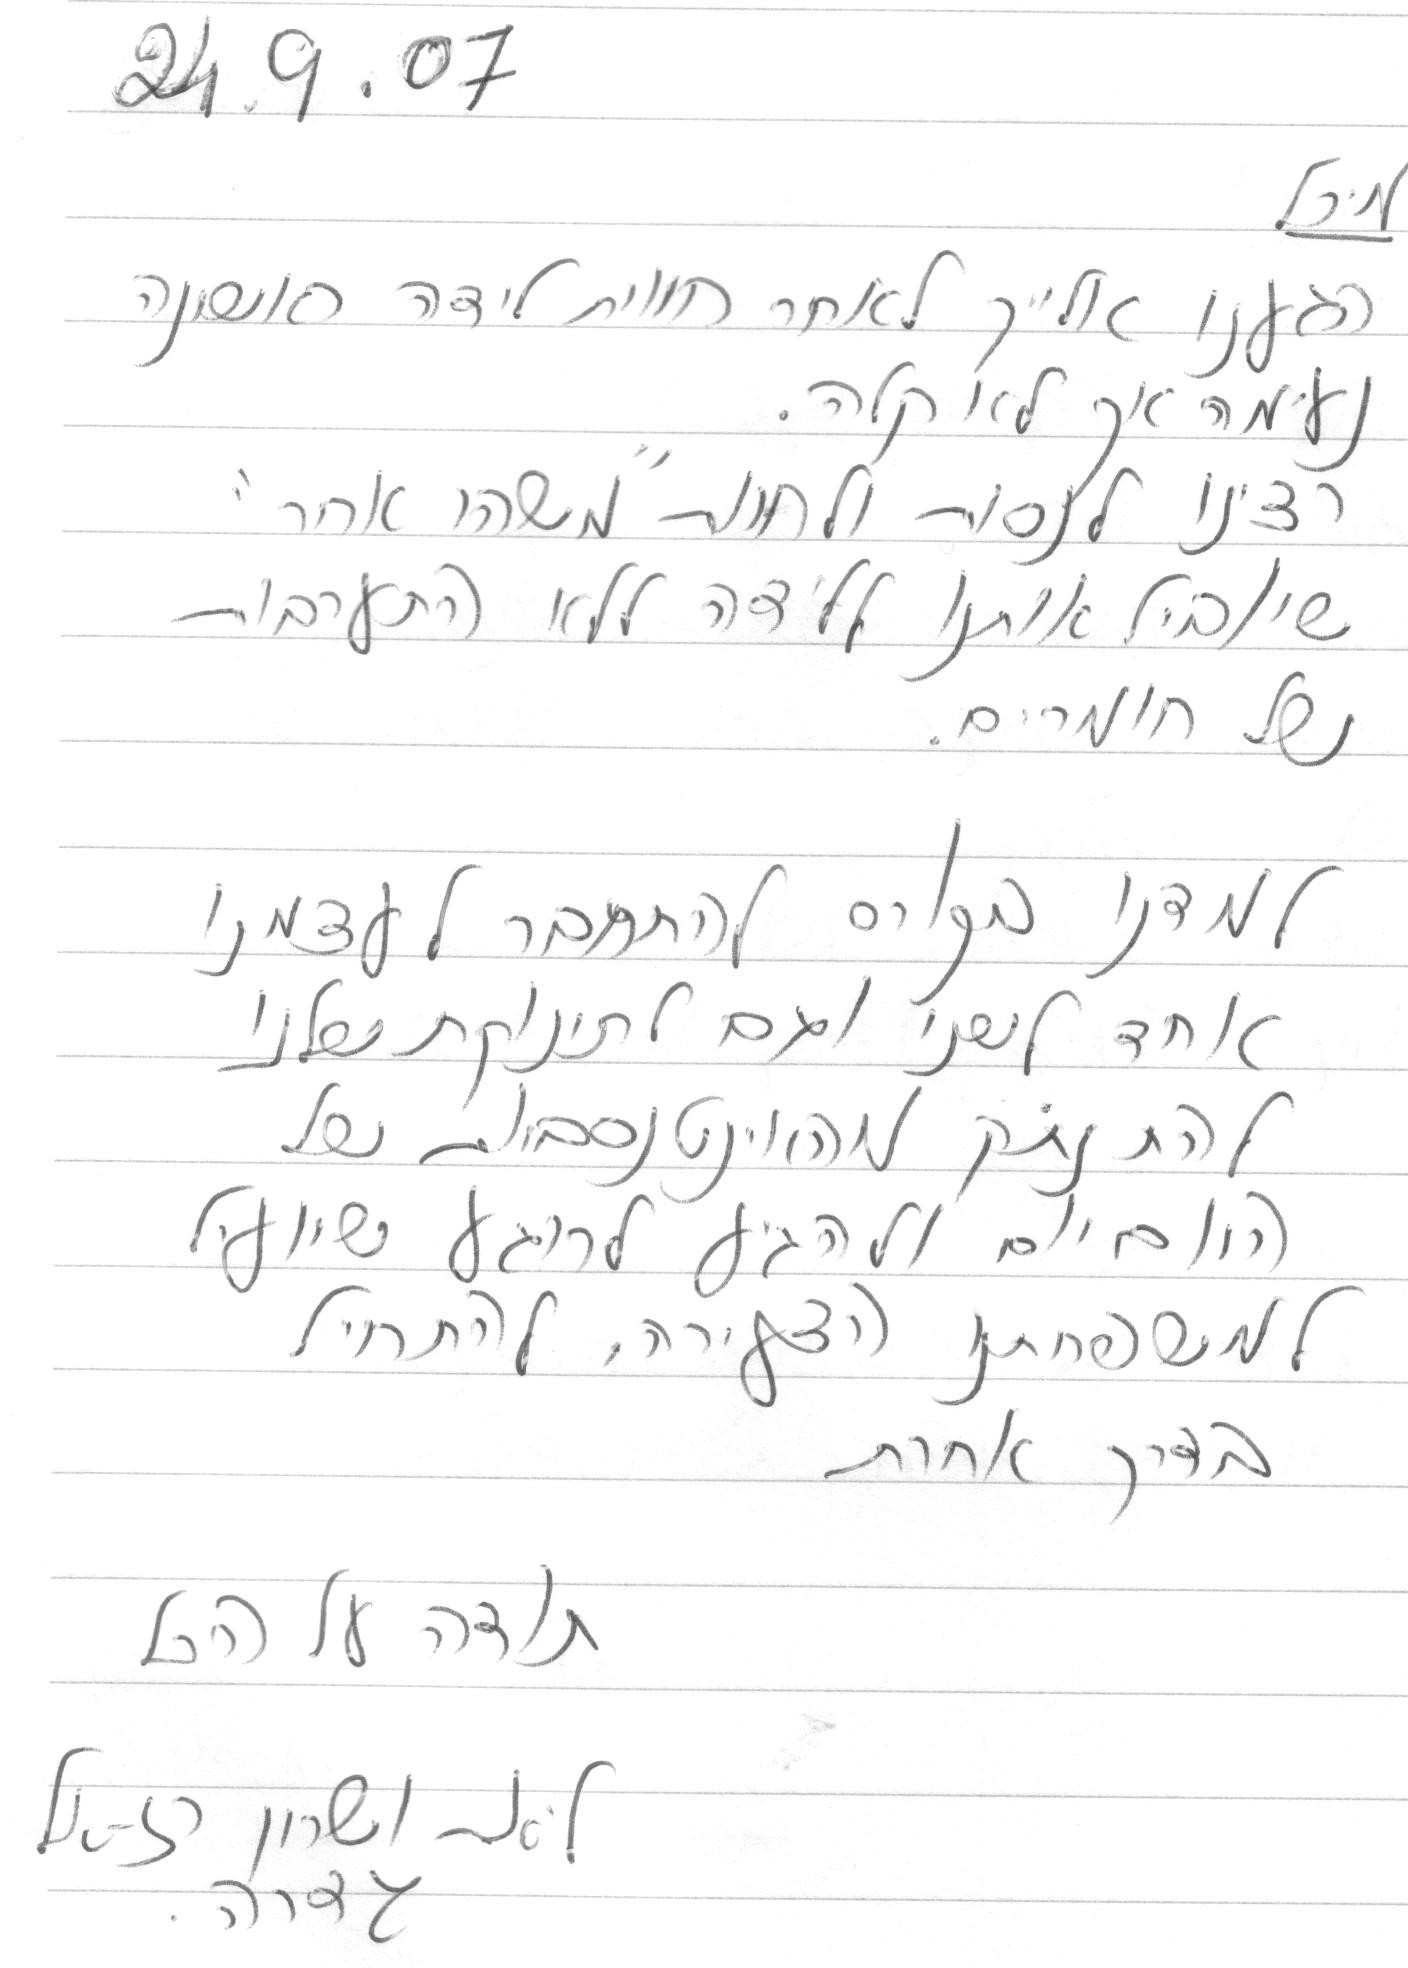 24.9.07
מיכל
הגענו אלייך לאחר חווית לידה ראשונה
נעימה אך לא קלה.
רצינו לנסות ולחוות "משהו אחר"
שיוביל אותנו ללידה ללא התערבות
של חומרים.
למדנו בקורס להתחבר לעצמנו
אחד לשני וגם לתינוקת שלנו
להתנתק מהאינטנסביות של
היום יום ולהגיע לרוגע שיועיל
למשפחתנו הצעירה, להתחיל
בדרך אחרת
תודה על הכל
ושרון
גדרה.